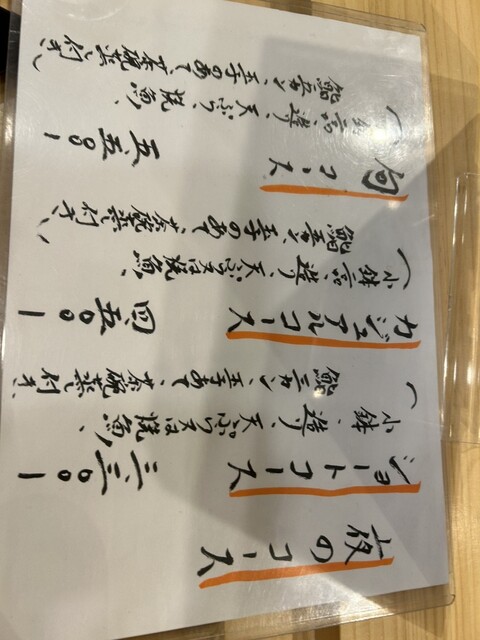 夜のコース
ショートコース 三、三〇〇ー
(小鉢、造り、天ぷら又は焼魚、
鮨三カン、玉子あて、茶碗蒸し付き)
カジュアルコース 四、五〇〇ー
(小鉢二品、造り、天ぷら又は焼魚、
鮨五カン、玉子のあて、茶碗蒸し付き)
旬コース 五、五〇〇ー
(品、造り、天ぷら、焼魚、
鮨五カン、玉子のあて、茶碗蒸し付き)